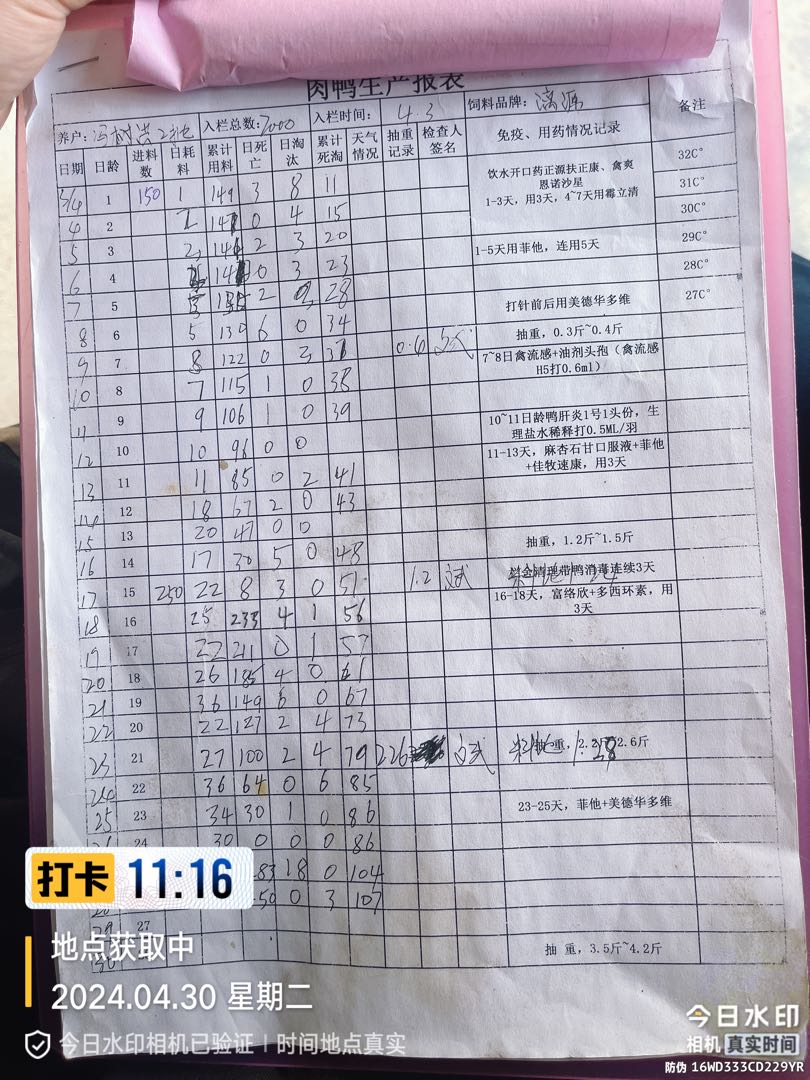 肉鸭生产报表
养户: 2池 入栏总数:7000 入栏时间: 4.3 饲料品牌: 备注
日期 日龄 进料数 日耗料 累计用料 日死亡 日淘汰 累计死淘 天气情况 抽重记录 检查人签名 免疫、用药情况记录
3/4 1 150 1 149 3 8 11 饮水开口药正源扶正康、禽爽恩诺沙星 32C°
1-3天，用3天，4~7天用霉立清 31C°
4 2 0 4 15 30C°
5 3 2 3 20 1-5天用菲他，连用5天 29C°
6 4 0 3 23 28C°
7 5 2 28 打针前后用美德华多维 27C°
8 6 5 130 6 0 34 抽重，0.3斤~0.4斤
9 7 8 122 0 3 0.6 7~8日禽流感+油剂头孢（禽流感H5打0.6ml）
10 8 7 115 1 0 38
11 9 9 106 1 0 39
12 10 10 96 0 0 10~11日龄鸭肝炎1号1头份，生理盐水稀释打0.5ML/羽
13 11 11 85 0 2 41 11-13天，麻杏石甘口服液+菲他+佳牧速康，用3天
14 12 18 67 2 0 43
15 13 20 47 0 0
16 14 17 30 5 0 48 抽重，1.2斤~1.5斤
17 15 250 22 8 3 0 51 1.2 文武 带鸭消毒连续3天
18 16 25 233 4 1 56 16-18天，富络欣+多西环素，用3天
19 17 22 211 0 1 57
20 18 26 185 4 0 61
21 19 36 149 6 0 67
22 20 22 127 2 4 73
23 21 27 100 2 4 79 226 文武 抽重，2.2斤~2.6斤 1.28
24 22 36 64 0 6 85
25 23 34 30 1 0 86 23-25天，菲他+美德华多维
24 30 0 0 0 86
83 18 0 104
50 0 3 107
27
抽 重，3.5斤~4.2斤
打卡 11:16
地点获取中
2024.04.30 星期二
今日水印相机已验证 | 时间地点真实
今日水印
相机 真实时间
防伪 16WD333CD229YR